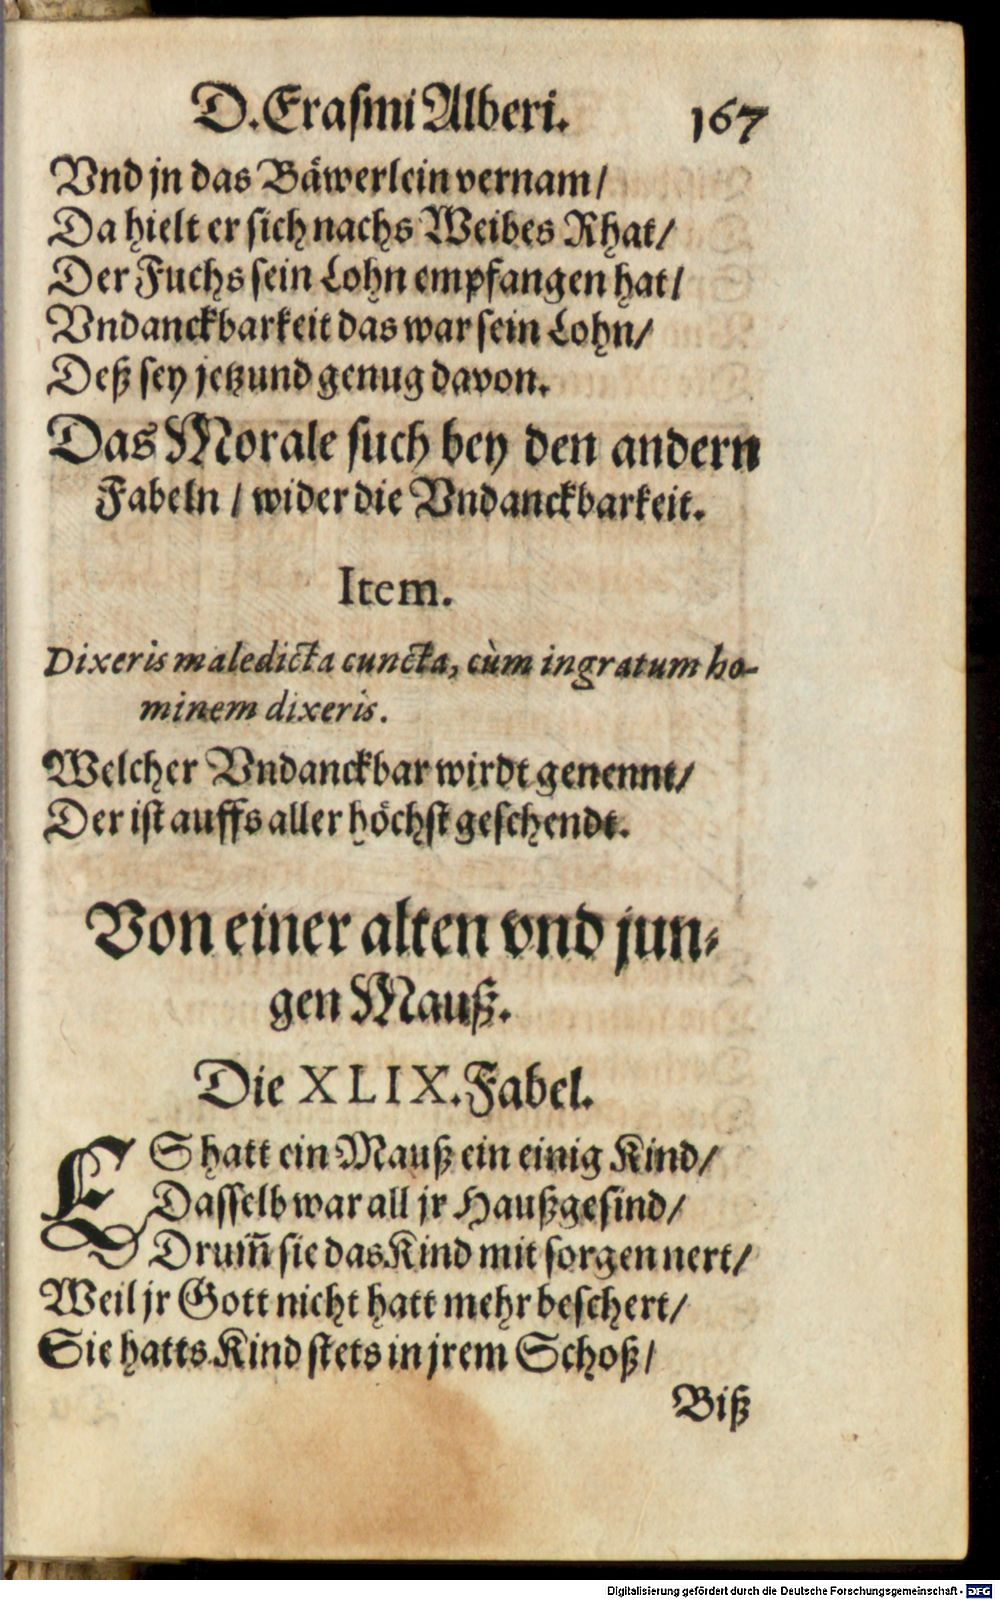 D. Erasmi Alberi. 167
Vnd jn das Bäwerlein vernam/
Da hielt er sich nachs Weibes Rhat/
Der Fuchs sein Lohn empfangen hat/
Vndanckbarkeit das war sein Lohn/
Deß sey jetzund genug davon.
Das Morale such bey den andern
Fabeln / wider die Vndanckbarkeit.
Item.
Dixeris maledicta cuncta, cùm ingratum ho-
minem dixeris.
Welcher Vndanckbar wirdt genennt/
Der ist auffs aller höchst geschendt.
Von einer alten vnd jun-
gen Mauß.
Die XLIX. Fabel.
ES hatt ein Mauß ein einig Kind/
Dasselb war all jr Haußgesind/
Drum̃ sie das Kind mit sorgen nert/
Weil jr Gott nicht hatt mehr beschert/
Sie hatts Kind stets in jrem Schoß/
Biß
Digitalisierung gefördert durch die Deutsche Forschungsgemeinschaft - DFG